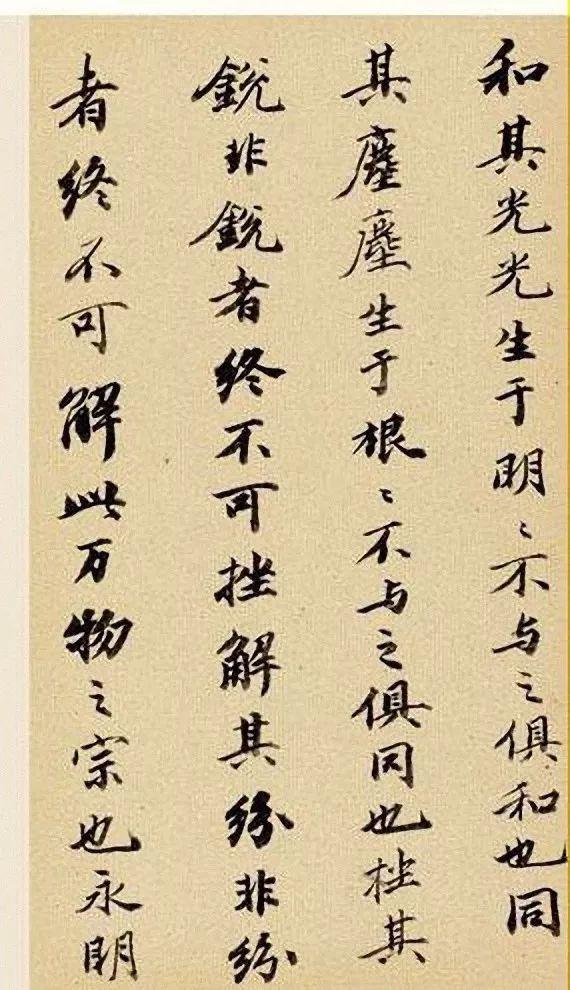 和其光光生于明〻不与之俱和也同
其塵塵生于根〻不与之俱同也挫其
銳非銳者終不可挫解其紛非紛
者終不可解此万物之宗也永明